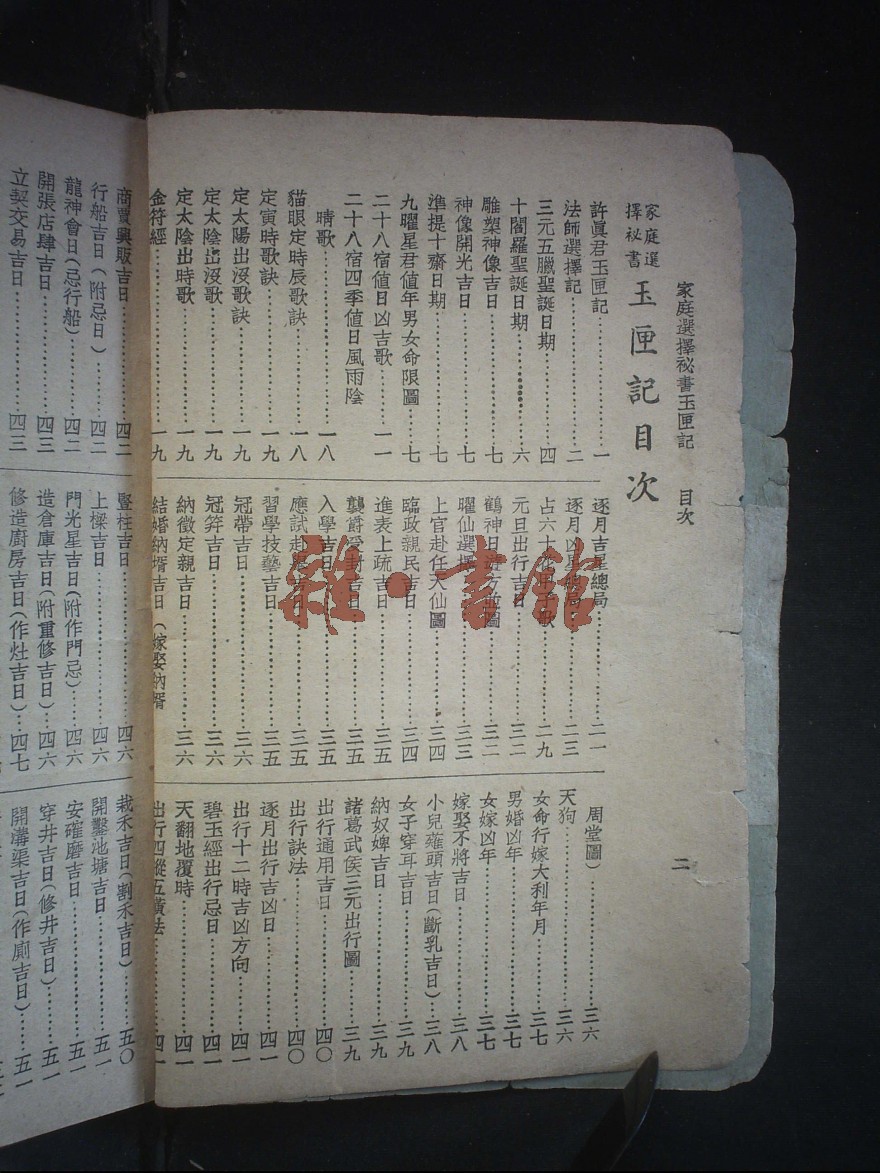 家庭選擇祕書玉匣記　目次
二
家庭選擇祕書　玉匣記目次
許眞君玉匣記……一
法師選擇記……二
三元五臘聖誕日期……四
十閻羅聖誕日期……六
雕塑神像吉日……七
神像開光吉日……七
準提十齋日期……七
九曜星君値年男女命限圖……七
二十八宿値日凶吉歌……一一
二十八宿四季値日風雨陰
晴歌……一八
貓眼定時辰歌訣……一八
定寅時歌訣……一九
定太陽出沒歌訣……一九
定太陰出沒歌……一九
定太陰出時歌……一九
金符經……一九
逐月吉星總局……二一
逐月凶星總局……二三
占六十……歌……二九
元旦出行吉日……三二
鶴神日遊方位圖……三二
曜仙選擇……三三
上官赴任天仙圖……三四
臨政親民吉日……三四
進表上疏吉日……三五
襲爵受封吉日……三五
入學吉日……三五
應試赴舉吉日……三五
習學技藝吉日……三五
冠帶吉日……三六
冠笄吉日……三六
納徵定親吉日……三六
結婚納壻吉日（嫁娶納壻
周堂圖）……三六
天狗……三六
女命行嫁大利年月……三七
男婚凶年……三七
女嫁凶年……三七
嫁娶不將吉日……三八
小兒薙頭吉日（斷乳吉日）……三八
女子穿耳吉日……三九
納奴婢吉日……三九
諸葛武侯三元出行圖……三九
出行通用吉日……四〇
出行訣法……四〇
逐月出行吉凶日……四一
出行十二時吉凶方向……四一
碧玉經出行忌日……四一
天翻地覆時……四一
出行四縱五橫法……四一
商賈興販吉日……四二
行船吉日（附忌日）……四二
龍神會日（忌行船）……四二
開張店肆吉日……四三
立契交易吉日……四三
豎柱吉日……四六
上樑吉日……四六
門光星吉日（附作門忌）……四六
造倉庫吉日（附重修吉日）……四六
修造廚房吉日（作灶吉日）……四七
栽禾吉日（割禾吉日）……五〇
開鑿池塘吉日……五一
安碓磨吉日……五一
穿井吉日（修井吉日）……五一
開溝渠吉日（作廁吉日）……五一
雜·書館